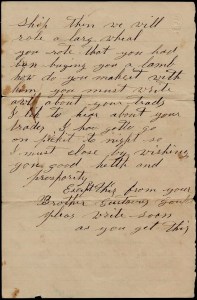 Ship then we will
rote a larg wheal
you rote that you had
ben buying you a lamb
how do you makeit with
him you must write
all about your trads
I like to hear about your
trades I hav gotto go
on pickit to night so
I must close by wishing
you good helth and
prosperity
from your
Brother Gustavus
pleas write soon
as you get this